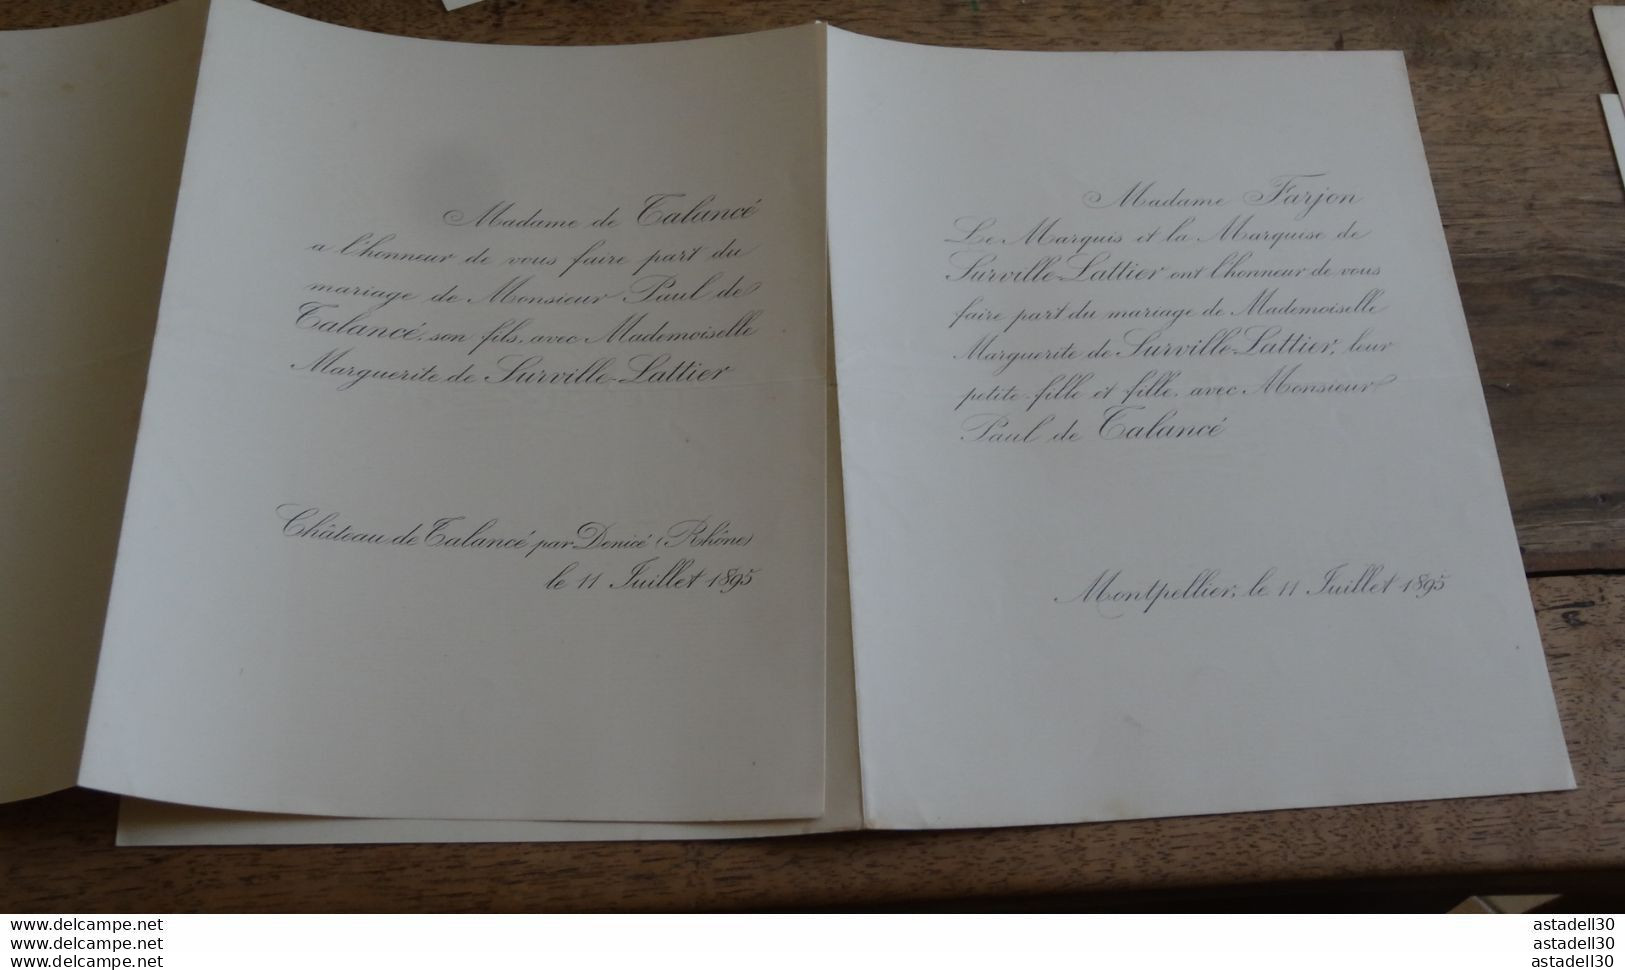 Madame de Talancé
a l'honneur de vous faire part du
mariage de Monsieur Paul de
Talancé, son fils, avec Mademoiselle
Marguerite de Surville-Lattier
Château de Talancé par Denicé (Rhône)
le 11 Juillet 1895
Madame Farjon
Le Marquis et la Marquise de
Surville-Lattier ont l'honneur de vous
faire part du mariage de Mademoiselle
Marguerite de Surville-Lattier, leur
petite-fille et fille, avec Monsieur
Paul de Talancé
Montpellier, le 11 Juillet 1895
www.delcampe.net
www.delcampe.net
www.delcampe.net
astadell30
astadell30
astadell30